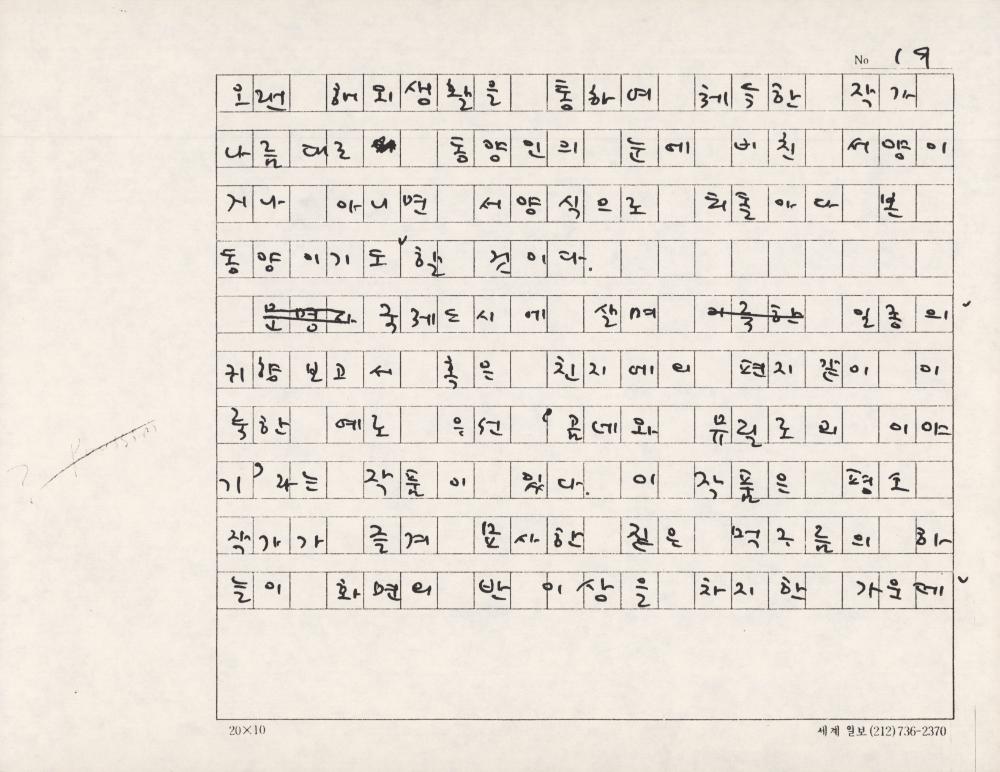 No 19
오랜 해외 생활을 통하여 체득한 작가
나름대로 동양인의 눈에 비친 서양이
거나 아니면 서양식으로 되돌아다 본
동양이기도 한 것이다.
문명과 국제도시에 살며 이룩한 일종의
귀향 보고서 혹은 친지에의 편지 같이 이
룩한 예로 은선 '곰네와 뮤릴로의 이야
기' 라는 작품이 있다. 이 작품은 평소
작가가 즐겨 묘사한 짙은 먹구름의 하
늘이 화면의 반 이상을 차지한 가운데
20×10
세계 일보 (212) 736-2370